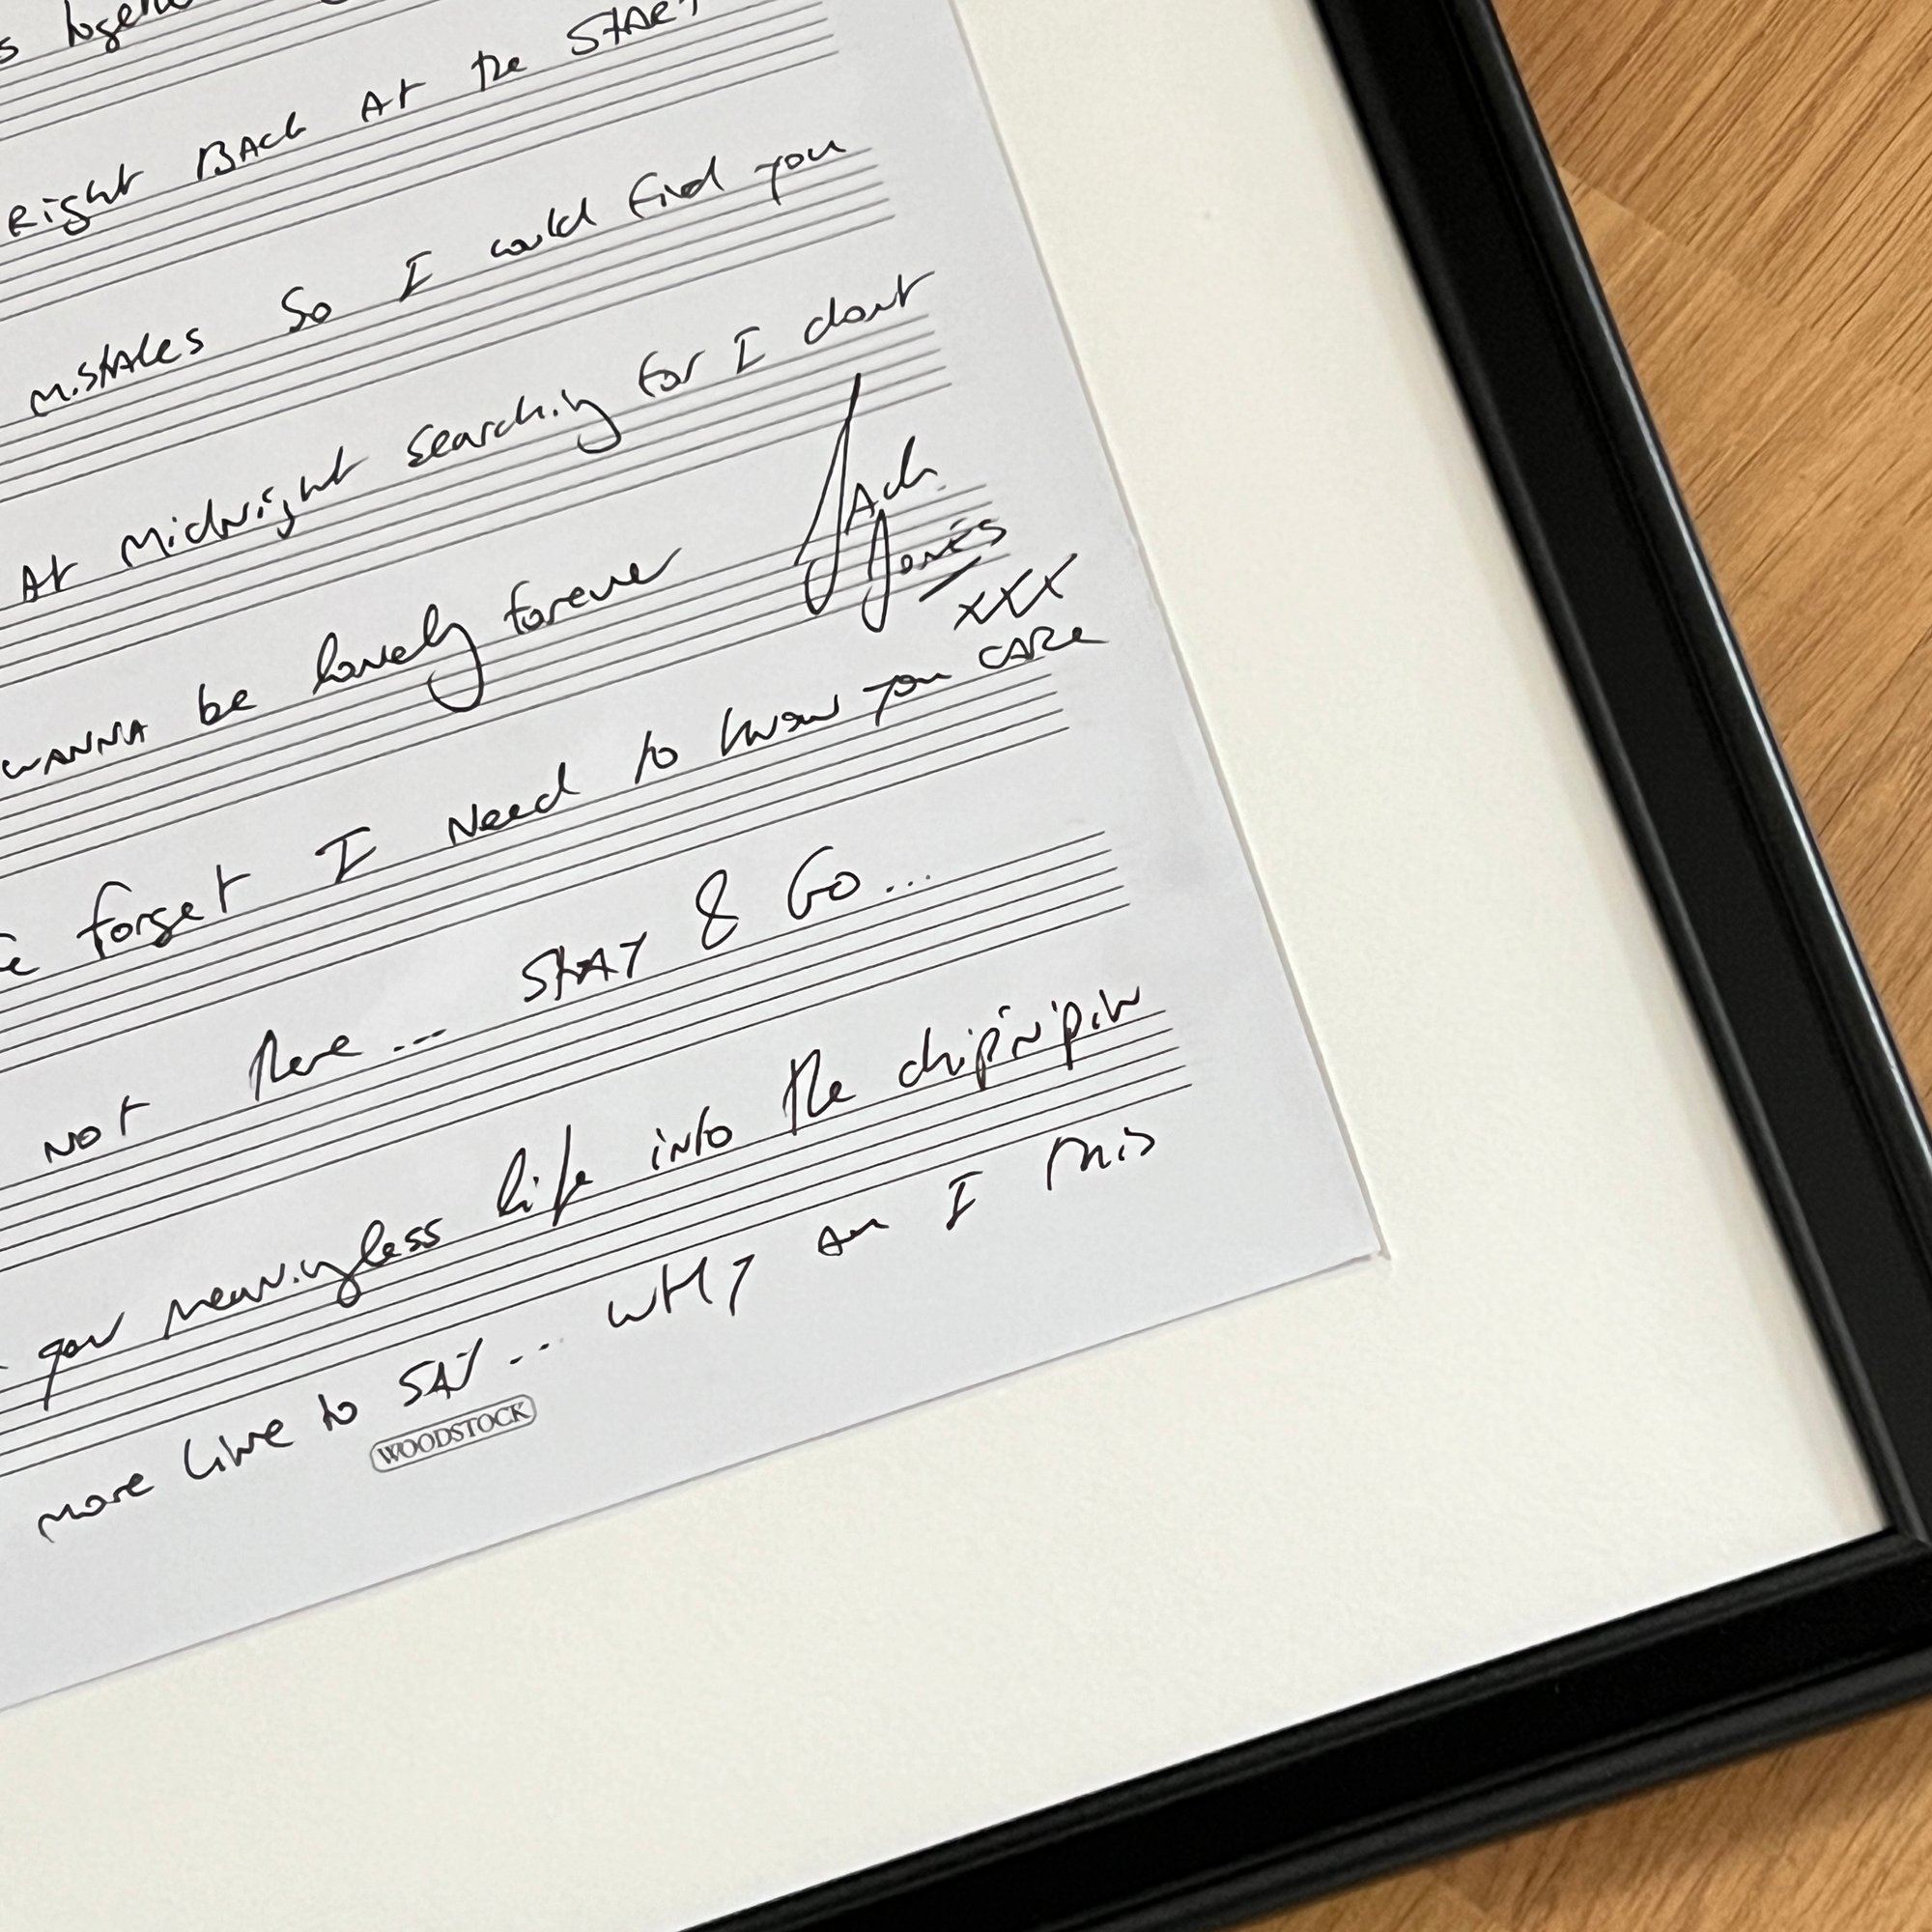 together
Right Back At the START
mistakes So I could find you
At Midnight Searching for I dont
WANNA be lonely forever
Jack
Jones
xxx
forget I Need to know you CARe
Not there... STAY & Go...
your meaningless life into the chip'n'pin
more Line to SAY... WHY am I this
WOODSTOCK